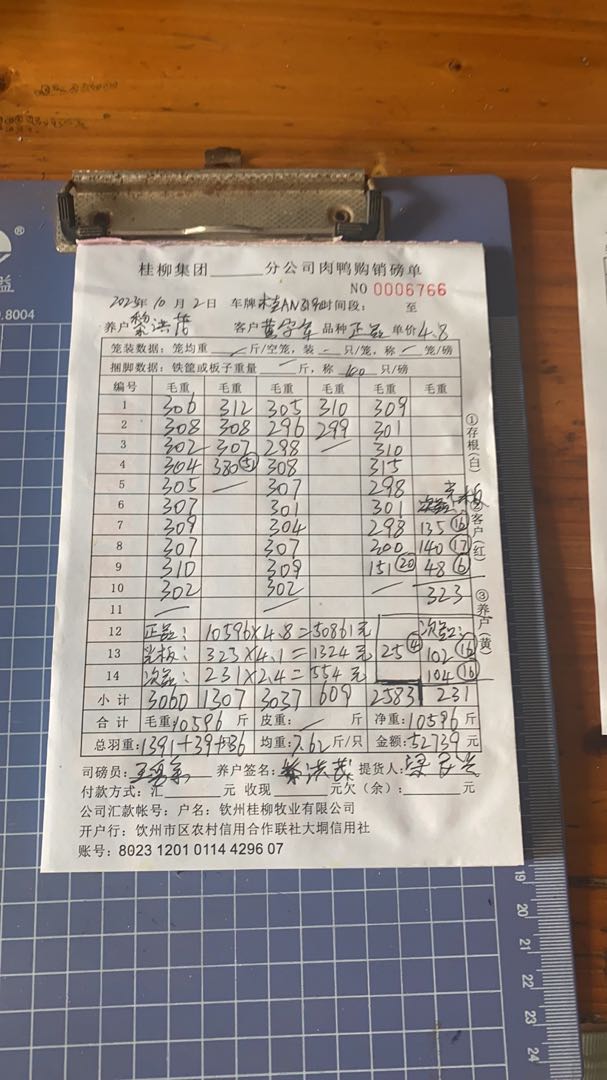 益
0.8004
桂柳集团______分公司肉鸭购销磅单
NO 0006766
2023年10月2日 车牌 时间段: 至
养户 客户 品种 正品 单价4.8
笼装数据: 笼均重 / 斤/空笼, 装 - 只/笼, 称 - 笼/磅
捆脚数据: 铁筐或板子重量 / 斤, 称 100 只/磅
编号 毛重 毛重 毛重 毛重 毛重 毛重
1 306 312 305 310 309
2 308 308 296 299 301
3 302 307 298 / 310
4 304 380 308 315
5 305 / 307 298 光板
6 307 301 301
7 309 304 298 135 16
8 307 307 300 140 17
9 310 309 151 20 48 6
10 302 302 / 323
11 / /
12 正品: 10596×4.8=50861元 次品:
13 光板: 323×4.1=1324元 25 4 102
14 次品: 231×2.4=554元 104 16
小计 3060 1307 3037 609 2583 231
合计 毛重:10596 斤 皮重: / 斤 净重:10596 斤
总羽重:1391+39+36 均重:7.62斤/只 金额:52739元
司磅员: 养户签名: 提货人:
付款方式: 汇______元 收现______元欠(余):______元
公司汇款帐号: 户名: 钦州桂柳牧业有限公司
开户行: 钦州市区农村信用合作联社大垌信用社
账号: 8023 1201 0114 4296 07
①存根(白)
②客户(红)
③养户(黄)
19
20
21
22
23
24